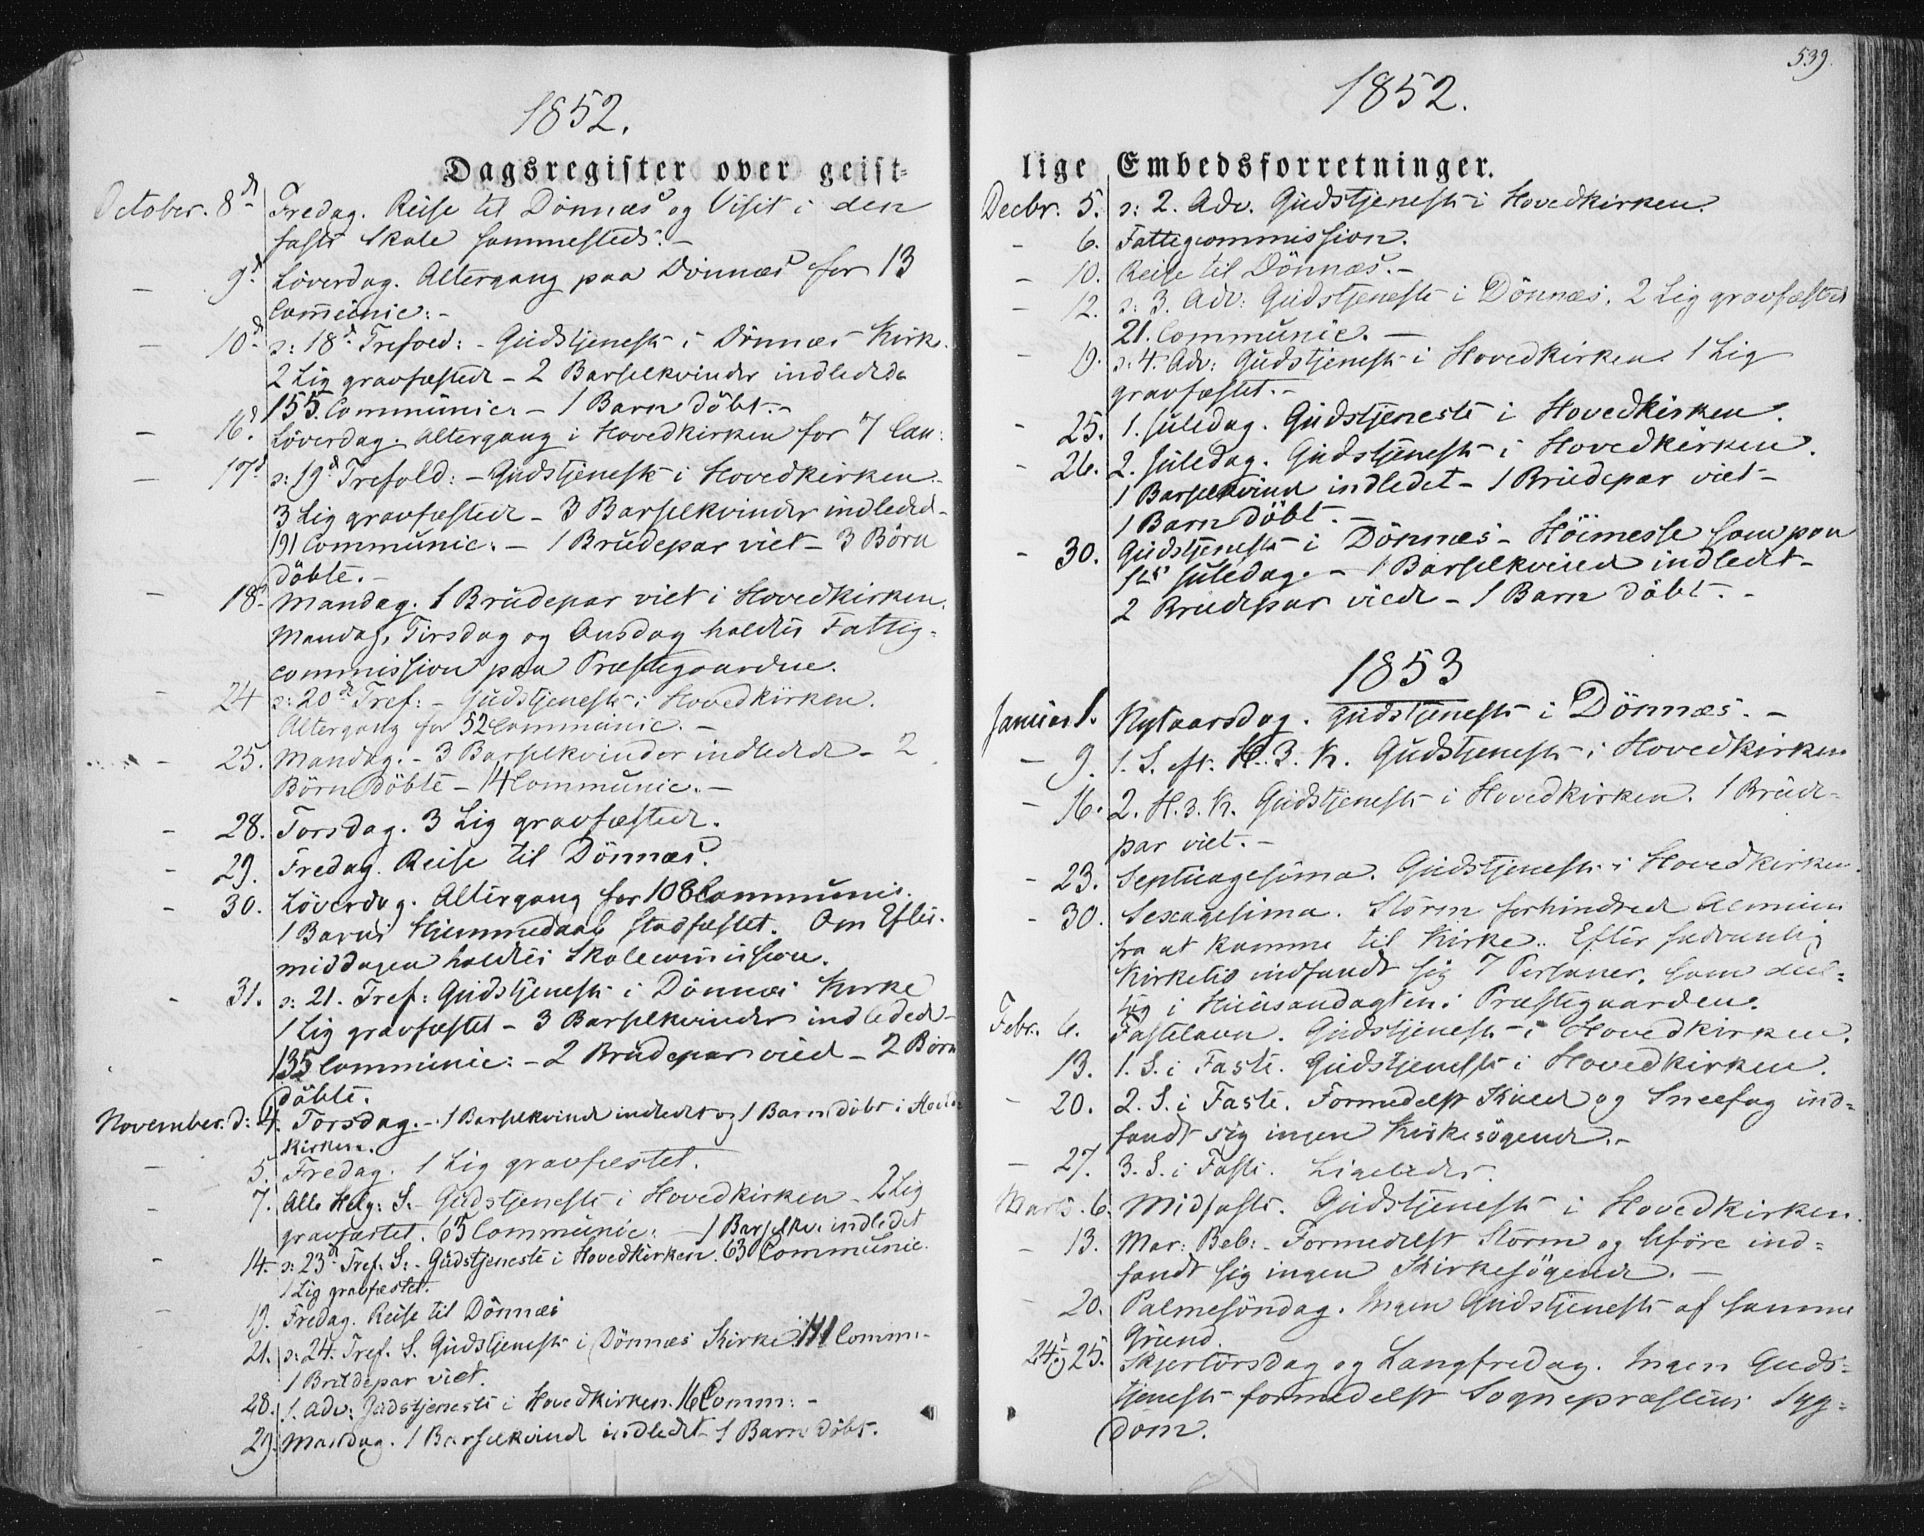 1852.
Dagsregister over geist-
October. 8d Fredag. Reise til Dönnæs og Visit i den
faste Skole sammesteds. -
- 9d Löverdag. Altergang paa Dönnæs for 13
Commünic: -
- 10d s: 18d Trefold: - Gudstjeneste i Dönnæs Kirke.
2 Lig gravfæstede - 2 Barselkvinder indledede
155 Communic: - 1 Barn döbt. -
- 16d. Löverdag. Altergang i Hovedkirken for 7 Com:
- 17d s: 19d Trefold: - Gudstjeneste i Hovedkirken -
3 Lig gravfæstede - 3 Barselkvinder indledede -
191 Communic: - 1 Brudepar viet - 3 Börn
döbte. -
- 18d Mandag. 1 Brudepar viet i Hovedkirken.
Mandag, Tirsdag og Onsdag holdtes Fattig-
commission paa Præstegaarden.
- 24 s: 20d Tref: - Gudstjeneste i Hovedkirken.
Altergang for 52 Communic. -
- 25. Mandag. - 3 Barselkvinder indledede - 2
Börn döbte - 14 Communic. -
- 28. Torsdag. 3 Lig gravfæstede.
- 29. Fredag. Reise til Dönnæs.
- 30. Löverdag. Altergang for 108 Communic.
1 Barns Hjemmedaab stadfæstet. Om Efter-
middagen holdtes Skolecommission.
- 31. s: 21. Tref: Gudstjeneste i Dönnæs Kirke
1 Lig gravfæstet - 3 Barselkvinder indledede -
135 Communic: - 2 Brudepar viede - 2 Börn
döbte.
November. d: 4. Torsdag. - 1 Barselkvinde indledet og 1 Barn döbt i Hoved-
kirken.
- 5. Fredag. 1 Lig gravfæstet.
- 7. Alle Helg: S. - Gudstjeneste i Hovedkirken - 2 Lig
gravfæstet. 65 Communic: - 1 Barselkv: indledet
- 14. s: 23d Tref. S: - Gudstjeneste i Hovedkirken. 63 Communic.
1 Lig gravfæstet.
- 19. Fredag. Reise til Dönnæs
21. s: 24. Tref. S. Gudstjeneste i Dönnæs Kirke 111 Comm: -
1 Brudepar viet.
28. 1. Adv: Gudstjeneste i Hovedkirken. 16 Comm: -
29. Mandag. 1 Barselkvinde indledet - 1 Barn döbt.
539.
1852.
lige Embedsforretninger.
Decbr. 5. s: 2. Adv. Gudstjeneste i Hovedkirken.
- 6. Fattigcommission.
- 10. Reise til Dönnæs. -
- 12. s: 3. Adv: Gudstjeneste i Dönnæs. 2 Lig gravfæstede
21 Communic. -
- 19. s: 4. Adv: Gudstjeneste i Hovedkirken 1 Lig
gravfæstet. -
- 25. 1. Juledag. Gudstjeneste i Hovedkirken.
- 26. 2. Juledag. Gudstjeneste i Hovedkirken.
1 Barselkvinde indledet - 1 Brudepar viet -
1 Barn döbt. -
- 30. Gudstjeneste i Dönnæs - Höimesse som paa
1ste Juledag. - 1 Barselkvinde indledet -
2 Brudepar viede - 1 Barn döbt. -
1853
Januar 1. Nytaarsdag. Gudstjeneste i Dönnæs. -
- 9. 1. S. eft. H. 3. K. Gudstjeneste i Hovedkirken
- 16. 2. H. 3. K. Gudstjeneste i Hovedkirken. 1 Brude-
par viet. -
- 23. Septuagesima. Gudstjeneste i Hovedkirken.
- 30. Sexagesima. Storm forhindrede Almuen
fra at komme til Kirke. Efter sædvanlig
Kirketid indfandt sig 7 Personer, som deel-
tog i Huusandagten i Præstegaarden.
Febr. 6. Fastelavn. Gudstjeneste i Hovedkirken.
13. 1. S. i Faste. Gudstjeneste i Hovedkirken.
- 20. 2. S. i Faste. Formedelst Kulde og Sneefog ind-
fandt sig ingen Kirkesögende. -
- 27. 3. S. i Faste. Ligeledes.
Marts. 6. Midfaste. Gudstjeneste i Hovedkirken.
- 13. Mar: Beb: - Formedelst Storm og Uföre ind-
fandt sig ingen Kirkesögende. -
- 20. Palmesöndag. Ingen Gudstjeneste af samme
Grund.
24 og 25. Skjertorsdag og Langfredag. Ingen Guds-
tjeneste formedelst Sognepræstens Syg-
dom.